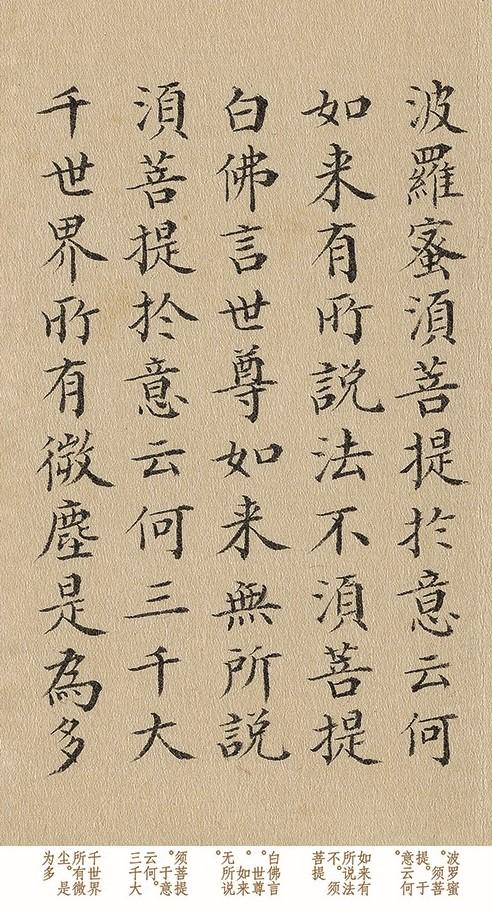 波羅蜜須菩提於意云何
如来有所説法不須菩提
白佛言世尊如来無所説
須菩提於意云何三千大
千世界所有微塵是為多
波罗蜜
。须菩
提。于
意云何
如来有
所说法
不。须
菩提
白佛言
。世尊
。如来
无所说
。
须菩提
。于意
云何。
三千大
千世界
所有微
尘。是
为多